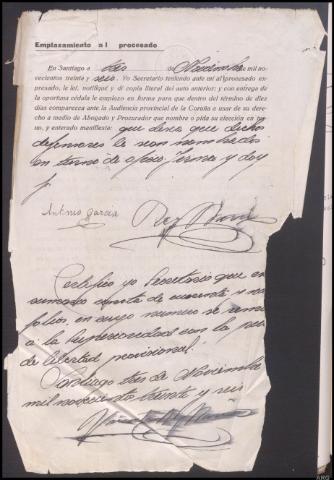 Emplazamiento al procesado
En Santiago a tres de Noviembre de mil no-
vecientos treinta y seis. Yo Secretario teniendo ante mí al procesado ex-
presado, le leí, notifiqué y di copia literal del auto anterior; y con entrega de
la oportuna cédula le emplazo en forma para que dentro del término de diez
días comparezca ante la Audiencia provincial de la Coruña a usar de su dere-
cho a medio de Abogado y Procurador que nombre o pida su elección en tur-
no, y enterado manifiesta: que desea que dichos
defensores le sean nombrados
en turno de oficio, firma y doy
f
Antonio Garcia
Rey
Certifico yo Secretario que en
sumario consta de cuarenta y
folios, en cuyo numero se remite
a la Superioridad con la
de libertad provisional.
Santiago tres de Noviembre
mil novecientos treinta y seis
ARG